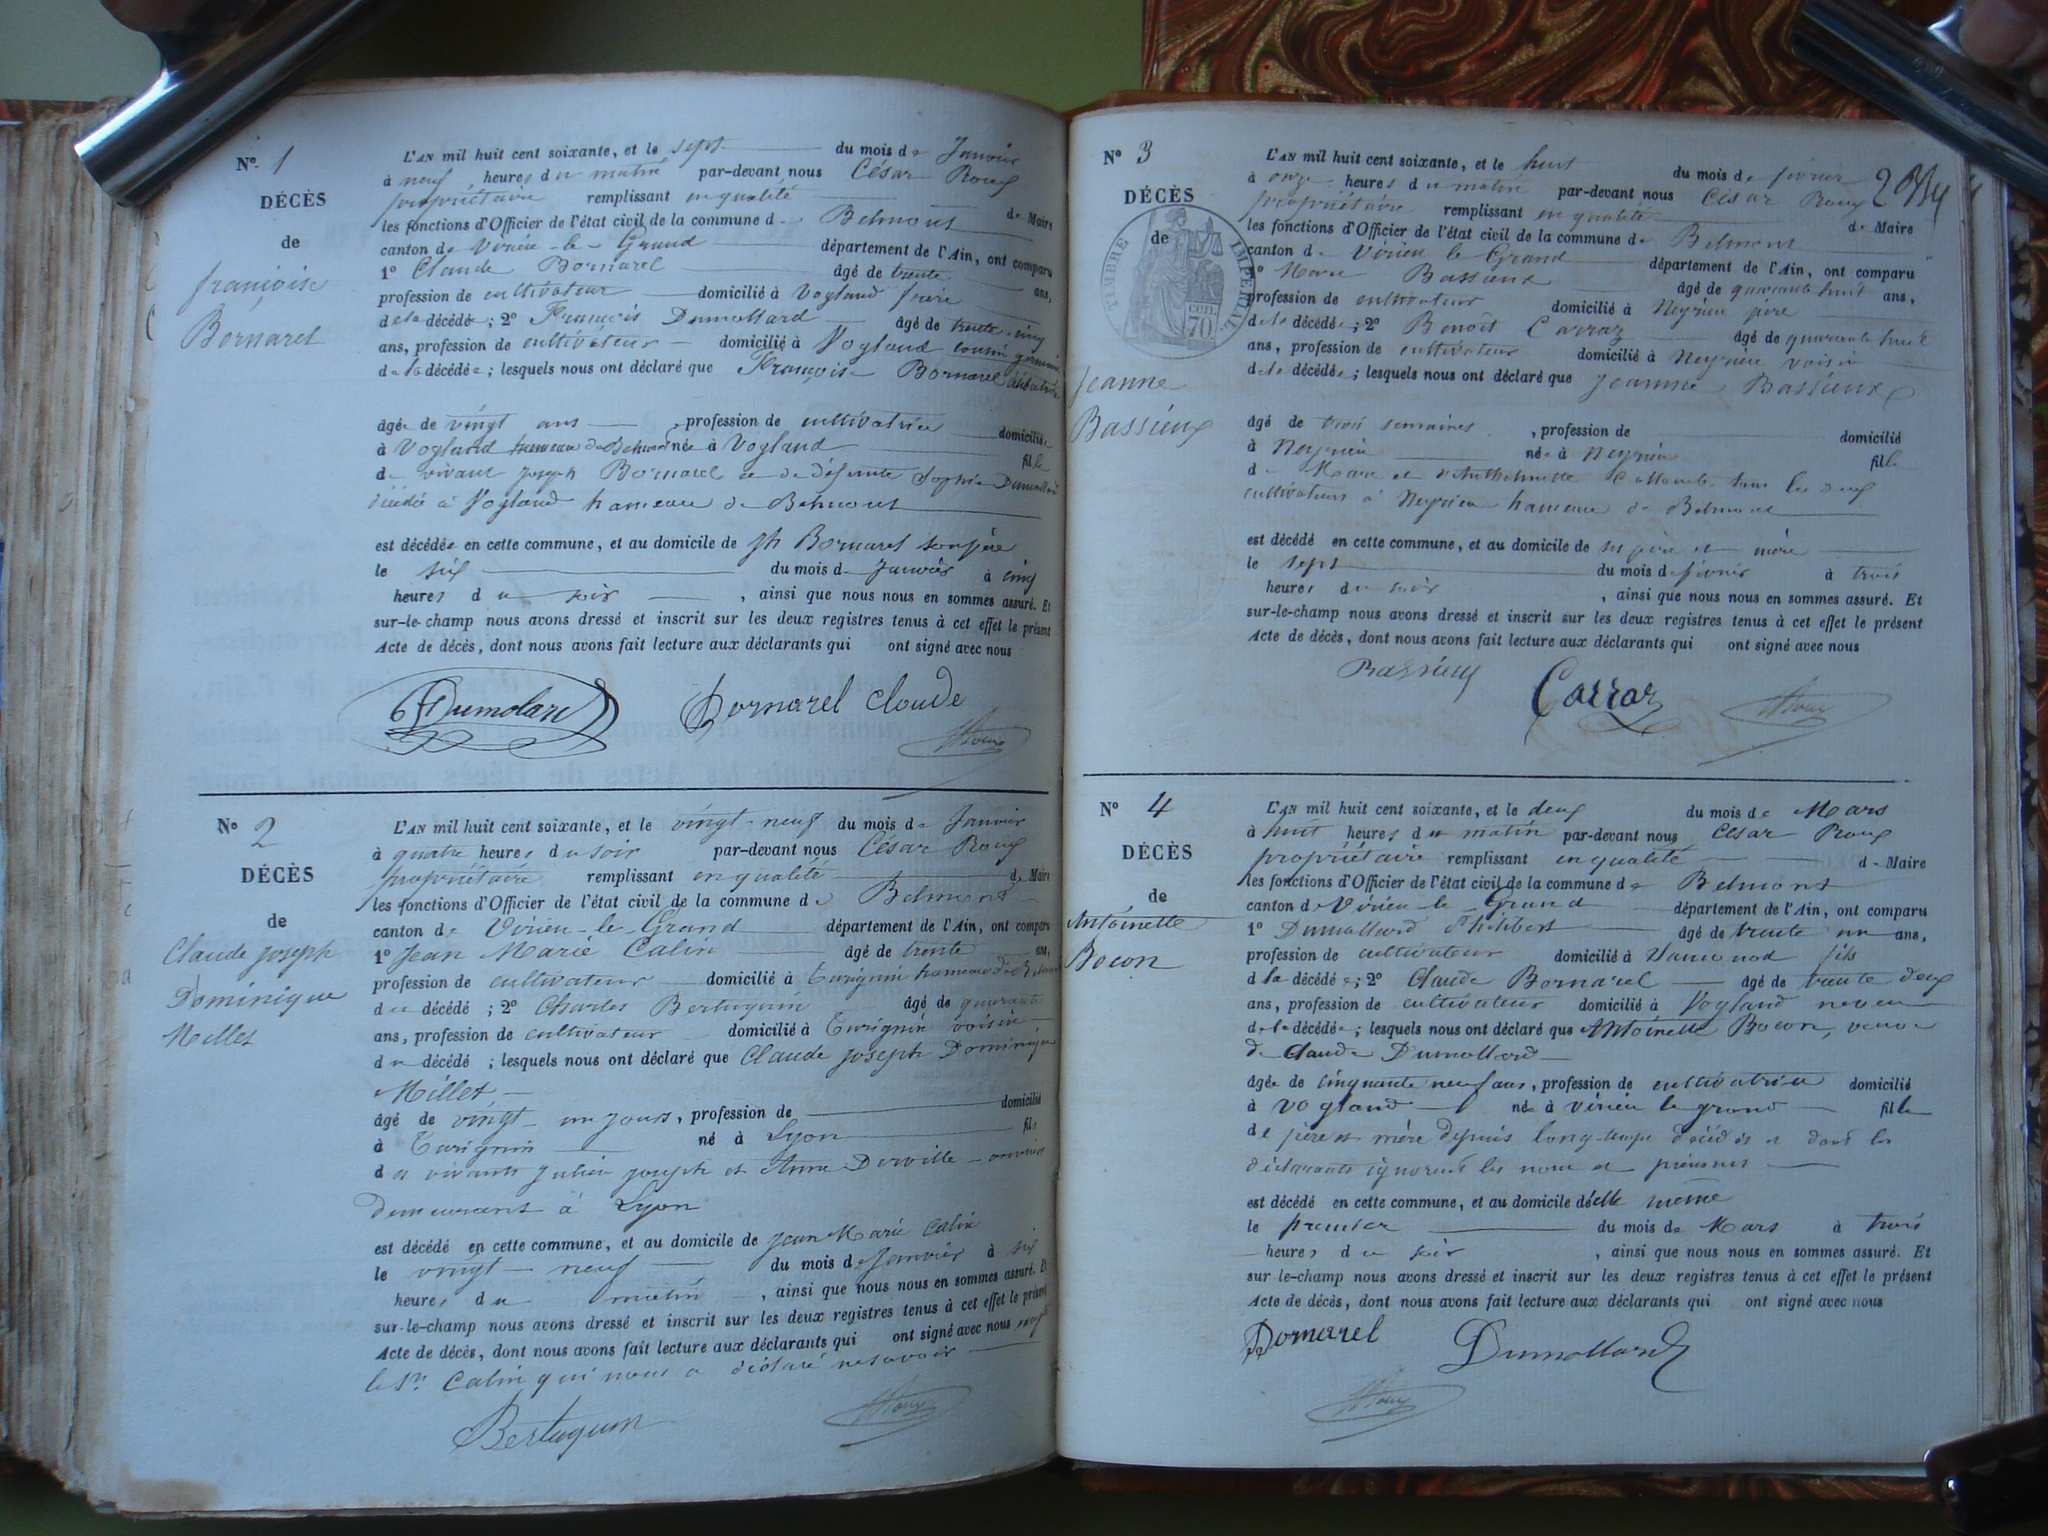 N° 1
DÉCÈS
de
françoise
Bornarel
L'AN mil huit cent soixante, et le sept du mois de Janvier
à neuf heures du matin par-devant nous César Roux
propriétaire remplissant en qualité de Maire
les fonctions d'Officier de l'état civil de la commune de Belmont
canton de Virieu-le-Grand département de l'Ain, ont comparu
1° Claude Bornarel âgé de trente ans,
profession de cultivateur domicilié à Vogland frère
de la décédée; 2° François Dumollard âgé de trente-cinq
ans, profession de cultivateur domicilié à Vogland cousin germain
de la décédée; lesquels nous ont déclaré que Françoise Bornarel célibataire
âgée de vingt ans, profession de cultivatrice domiciliée
à Vogland hameau de Belmont née à Vogland fille
de vivant joseph Bornarel et de défunte Sophie Dumollard
décédée à Vogland hameau de Belmont
est décédée en cette commune, et au domicile de jh Bornarel son père
le six du mois de Janvier à cinq
heures du soir, ainsi que nous nous en sommes assuré. Et
sur-le-champ nous avons dressé et inscrit sur les deux registres tenus à cet effet le présent
Acte de décès, dont nous avons fait lecture aux déclarants qui ont signé avec nous
Dumolard Bornarel Claude
Roux
N° 2
DÉCÈS
de
Claude joseph
Dominique
Millet
L'AN mil huit cent soixante, et le vingt-neuf du mois de Janvier
à quatre heures du soir par-devant nous César Roux
propriétaire remplissant en qualité de Maire
les fonctions d'Officier de l'état civil de la commune de Belmont
canton de Virieu-le-Grand département de l'Ain, ont comparu
1° Jean Marie Calin âgé de trente ans,
profession de cultivateur domicilié à Turignin hameau de Belmont
du décédé; 2° Charles Bertuguin âgé de quarante
ans, profession de cultivateur domicilié à Turignin voisin
du décédé; lesquels nous ont déclaré que Claude joseph Dominique
Millet
âgé de vingt-un jours, profession de domicilié
à Turignin né à Lyon fils
des vivants Julien joseph et Anne Derville ouvriers
demeurant à Lyon
est décédé en cette commune, et au domicile de Jean Marie Calin
le vingt-neuf du mois de Janvier à six
heures du matin, ainsi que nous nous en sommes assuré. Et
sur-le-champ nous avons dressé et inscrit sur les deux registres tenus à cet effet le présent
Acte de décès, dont nous avons fait lecture aux déclarants qui ont signé avec nous sauf
le Sr. Calin qui nous a déclaré ne savoir
Bertuguin Roux
N° 3
DÉCÈS
de
TIMBRE IMPÉRIAL
70
Jeanne
Bassieux
L'AN mil huit cent soixante, et le huit du mois de février
à onze heures du matin par-devant nous César Roux
propriétaire remplissant en qualité de Maire
les fonctions d'Officier de l'état civil de la commune de Belmont
canton de Virieu le Grand département de l'Ain, ont comparu
1° Marc Bassieux âgé de quarante huit ans,
profession de cultivateur domicilié à Neyrieu père
de la décédée; 2° Benoit Carraz âgé de quarante huit
ans, profession de cultivateur domicilié à Neyrieu voisin
de la décédée; lesquels nous ont déclaré que Jeanne Bassieux
âgé de trois semaines, profession de domicilié
à Neyrieu née à Neyrieu fille
de Marc et tous les deux
cultivateurs à Neyrieu hameau de Belmont
est décédé en cette commune, et au domicile de ses père et mère
le sept du mois de février à trois
heures du soir, ainsi que nous nous en sommes assuré. Et
sur-le-champ nous avons dressé et inscrit sur les deux registres tenus à cet effet le présent
Acte de décès, dont nous avons fait lecture aux déclarants qui ont signé avec nous
Bassieux Carraz Roux
N° 4
DÉCÈS
de
Antoinette
Bocon
L'AN mil huit cent soixante, et le deux du mois de Mars
à huit heures du matin par-devant nous César Roux
propriétaire remplissant en qualité de Maire
les fonctions d'Officier de l'état civil de la commune de Belmont
canton de Virieu-le-Grand département de l'Ain, ont comparu
1° Dumollard Philibert âgé de trente un ans,
profession de cultivateur domicilié à fils
de la décédée; 2° Claude Bornarel âgé de trente deux
ans, profession de cultivateur domicilié à Vogland neveu
de la décédée; lesquels nous ont déclaré que Antoinette Bocon, veuve
de Claude Dumollard
âgée de cinquante neuf ans, profession de cultivatrice domicilié
à Vogland née à Virieu le grand fille
de père et mère depuis long-temps décédés et dont les
déclarants ignorent les noms et prénoms
est décédé en cette commune, et au domicile d'elle même
le premier du mois de Mars à trois
heures du soir, ainsi que nous nous en sommes assuré. Et
sur le-champ nous avons dressé et inscrit sur les deux registres tenus à cet effet le présent
Acte de décès, dont nous avons fait lecture aux déclarants qui ont signé avec nous
Bornarel Dumollard
Roux